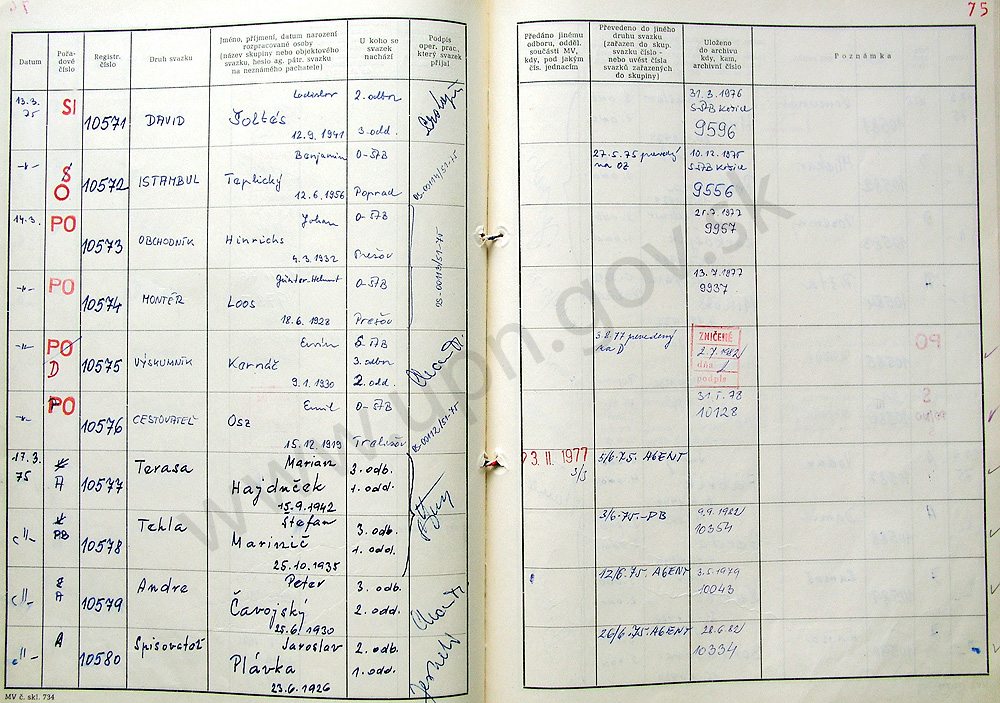 75
Datum
Pořadové číslo
Registr. číslo
Druh svazku
Jméno, příjmení, datum narození
rozpracované osoby
(název skupiny nebo objektového
svazku, heslo ag. pátr. svazku
na neznámého pachatele)
U koho se
svazek
nachází
Podpis
oper. prac.,
který svazek
přijal
Předáno jinému
odboru, odděl.
součásti MV,
kdy, pod jakým
čís. jednacím
Převedeno do jiného
druhu svazku
(zařazen do skup.
svazku číslo -
nebo uvést čísla
svazků zařazených
do skupiny)
Uloženo
do archivu
kdy, kam,
archivní číslo
Poznámka
13.3.
75
SI
10571
DAVID
Ladislav
Šoltés
12.9.1941
2. odbor
3. odd.
31.3.1976
S-ŠtB Košice
9596
S
O
10572
ISTAMBUL
Benjamin
Teplický
12.6.1956
O-ŠtB
Poprad
27.5.75 prevedý
na OZ
10.12.1975
S-ŠtB Košice
9556
14.3.
PO
10573
OBCHODNÍK
Johan
Hinrichs
4.3.1932
O-ŠtB
Prešov
9957
PO
10574
MONTÉR
Günter-Helmut
Loos
18.6.1928
O-ŠtB
Prešov
13.7.1977
9937
PO
D
10575
VÝSKUMNÍK
Ervín
9.1.1930
S ŠtB
3. odbor
2. odd.
3.8.77 prevedený
na D
ZNIČENÉ
2.7.1982
dňa
podpis
PO
10576
CESTOVATEĽ
Emil
Osz
15.12.1919
O-ŠtB
Trebišov
10128
17.3.
75
A
10577
Terasa
Marian
Hajduček
15.9.1942
3. odb.
1. odd.
23. II. 1977
5/6.75. AGENT
PB
10578
Tehla
Štefan
Marinič
25.10.1935
3. odb.
1. odd.
3/6-75.-PB
9.9.1982
10354
A
10579
Andre
Peter
Čavojský
25.6.1930
3. odb.
2. odd.
12/6.75. AGENT
3.5.1979
10043
A
10580
Spisovateľ
Jaroslav
Plávka
23.6.1926
2. odb.
1. odd.
26/6.75. AGENT
28.6.82
10334
MV č. skl. 734
www.upn.gov.sk